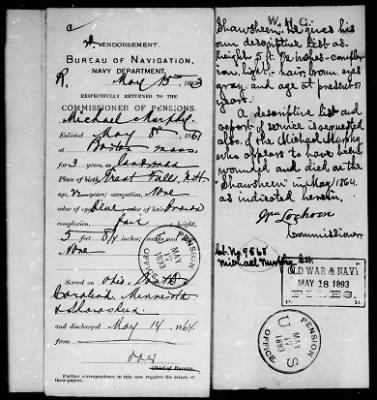 ENDORSEMENT.
BUREAU OF NAVIGATION,
NAVY DEPARTMENT,
May 15 1893
RESPECTFULLY RETURNED TO THE
COMMISSIONER OF PENSIONS.
Michael Murphy
Enlisted May 8 1861
at Boston Mass
for 3 years, as landsman
Place of birth, Great Falls, N.H.
age, 22 years; occupation, None
color of eyes Blue color of hair Brown
fair complexion,
5 feet 8 1/4 inches;
None
Served on Ohio,
Minnesota
& Shawsheen
and discharged May 14 1864
from
Chief of Bureau.
Further correspondence in this case require the return of
these papers.
W. H. G.
Shawsheen. He gives his
own descriptive list as,
height 5 ft. 7 1/2 inches - complex-
ion, light, hair, brown eyes
gray and age at present
years.
A descriptive list and
report of service is requested
also, of the Michael Murphy
who appears to have been
wounded and died on the
"Shawsheen" in May 1864.
as indicated herein.
Wm Lochren
Commissioner
No 9868
Michael Murphy
OLD WAR & NAVY
MAY 18 1893
FILES.
PENSION
U S
MAY
17
1893
OFFICE
PENSION
U S
MAY
17
1893
OFFICE